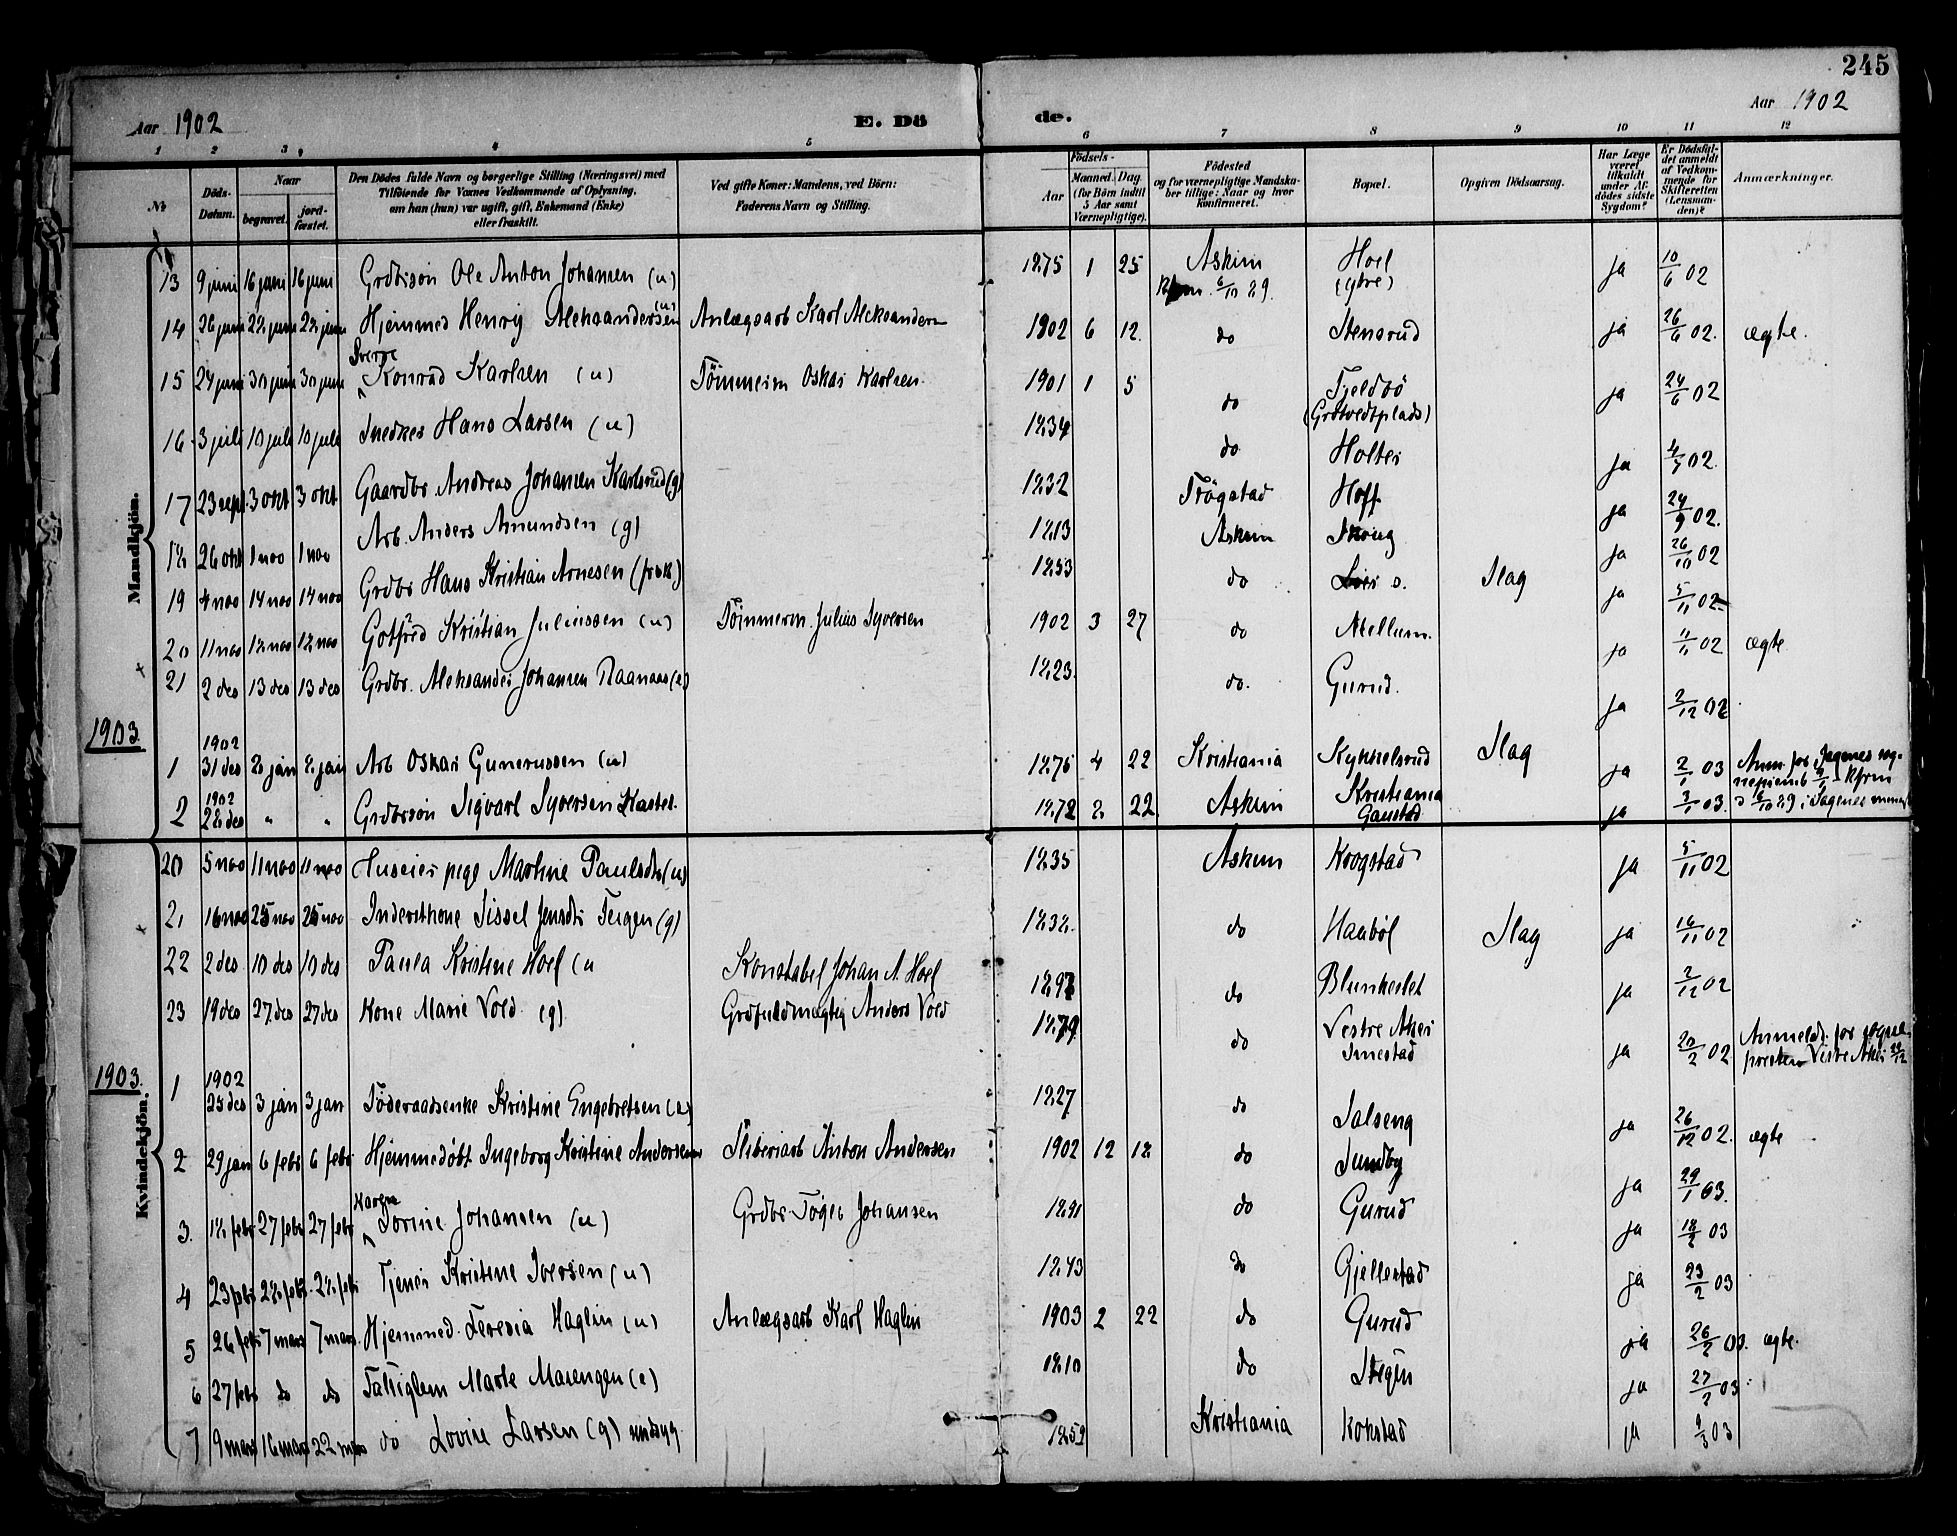 245
Aar 1902
E. Dö de.
Aar 1902
1 2 3 4 5 6 7 8 9 10 11 12
№
Döds-Datum.
Naar
begravet.
jord-fæstet.
Den Dödes fulde Navn og borgerlige Stilling (Næringsvei) med
Tilföiende for Voxnes Vedkommende af Oplysning,
om han (hun) var ugift, gift, Enkemand (Enke)
eller fraskilt.
Ved gifte Koner: Mandens, ved Börn:
Faderens Navn og Stilling.
Födsels-
Aar
Maaned. Dag.
(for Börn indtil
5 Aar samt
Værnepligtige).
Födested
og for værnepligtige Mandska-
ber tillige: Naar og hvor
konfirmeret.
Bopæl.
Opgiven Dödsaarsag.
Har Læge
været
tilkaldt
under Af-
dödes sidste
Sygdom?
Er Dödsfal-
det anmeldt
af Vedkom-
mende for
Skifteretten
(Lensman-
den)?
Anmærkninger.
Mandkjön.
13 9 juni 16 juni 16 juni Grdbrsön Ole Anton Johansen (u) 1875 1 25 Askim Hoel ja 10/6 02
Kfrm. 6/10 89. (ytre)
14 26 juni 28 juni 28 juni Hjemmed Henry Aleksandersen (u) Anlægsarb Karl Aleksandern 1902 6 12. do Stensrud ja 26/6 02. ægte.
15 24 juni 30 juni 30 juni Sverre Konrad Karlsen (u) Tömmerm Oskar Karlsen. 1901 1 5 do Fjeldbö ja 24/6 02
(Grötvedtplads)
16 3 juli 10 juli 10 juli Snedker Hans Larsen (u) 1834 do Holter ja 4/7 02.
17 23 sept 3 okt 3 okt Gaardbr. Andreas Johansen Karlsrud (g) 1832 Trögstad Hoff ja 24/9 02.
18 26 okt 1 nov 1 nov Arb. Anders Amundsen (g) 1813 Askim Skoug ja 26/10 02
19 4 nov 14 nov 14 nov Grdbr Hans Kristian Arnesen (frsk) 1853 do ö. Slag ja 5/11 02
20 11 nov 18 nov 18 nov Gotfred Kristian Juliussen (u) Tömmerm. Julius Syversen 1902 3 27 do Mellum. ja 11/11 02 ægte
21 2 des 13 des 13 des Grdbr. Aleksander Johansen Raanaas 1823. do. Gurud. ja 2/12 02
1903.
1 1902 31 des 8 jan 8 jan Arb Oskar Gunerussen (u) 1876 4 22 Kristiania Kykkelsrud Slag ja 2/1 03
2 1902 28 des " " Grdbrsön Sigvart Syversen Kastet. 1872 2. 22. Askim Kristiania Gaustad ja 3/1 03.
Kvindekjön.
20 5 nov 11 nov 11 nov Huseier pige Martine Paulsdtr (u) 1835 Askim Krogstad ja 5/11 02
21 16 nov 25 nov 25 nov Inderstkone Sissel Jensdtr Teigen (g) 1832. do Haabøl Slag ja 16/11 02
22 2 des 10 des 10 des Paula Kristine Hoel (u Konstabel Johan A. Hoel 1897 do Blunkeslet ja 2/12 02
23 19 des 27 des 27 des Kone Marie Vold (g) Grdfuldmægtig Anders Vold 1879 do Vestre Aker Smestad ja 20/2 02 Anmeldt for sogne-
presten Vestre Aker 22/12
1903.
1 1902 25 des 3 jan 3 jan Föderaadsenke Kristine Engebretsen 1827 do Salseng ja 26/12 02.
2 29 jan 6 febr 6 febr Hjemmedöbt Ingeborg Kristine Andersen Sliberiarb Anton Andersen 1902 12 18 do Sundby ja 29/1 03. ægte
3. 18 febr 27 febr 27 febr Karen Torine Johansen (u) Grdbr Töger Johansen 1891 do Gurud ja 18/2 03
4 23 febr 28 febr. 28 febr Tjener Kristine Iversen (u) 1843 do Gjellestad ja 23/2 03
5 26 febr 7 mars 7 mars Hjemmed. Teresia Haglin (u) Anlægsarb Karl Haglin 1903 2 22 do Gurud ja 26/2 03. ægte.
6 27 febr do do Fattiglem Marte Marengen (e) 1810 do ja 27/2 03
7 9 mars 16 mars 22 mars do Lovise Larsen (g) 1859 Kristiania Kokstad ja 9/3 03